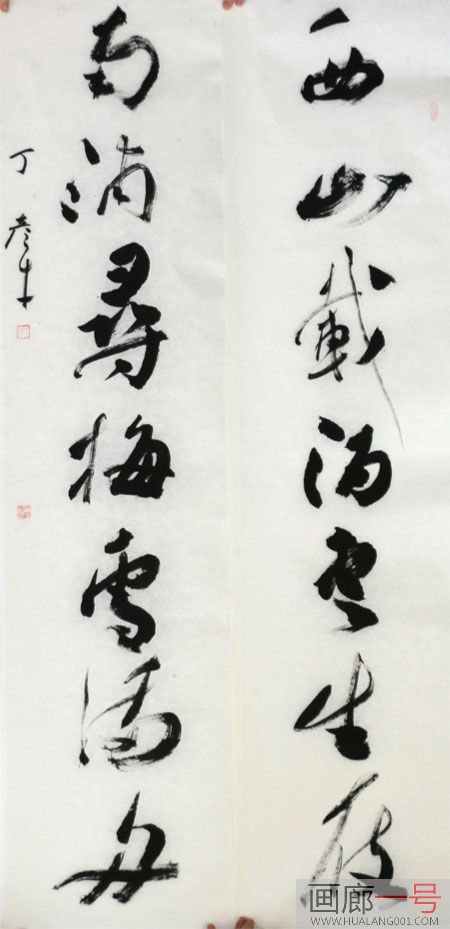 西山載酒雲生屐
南浦尋梅雪滿舟
丁
画廊一号
WWW.HUALANG001.COM